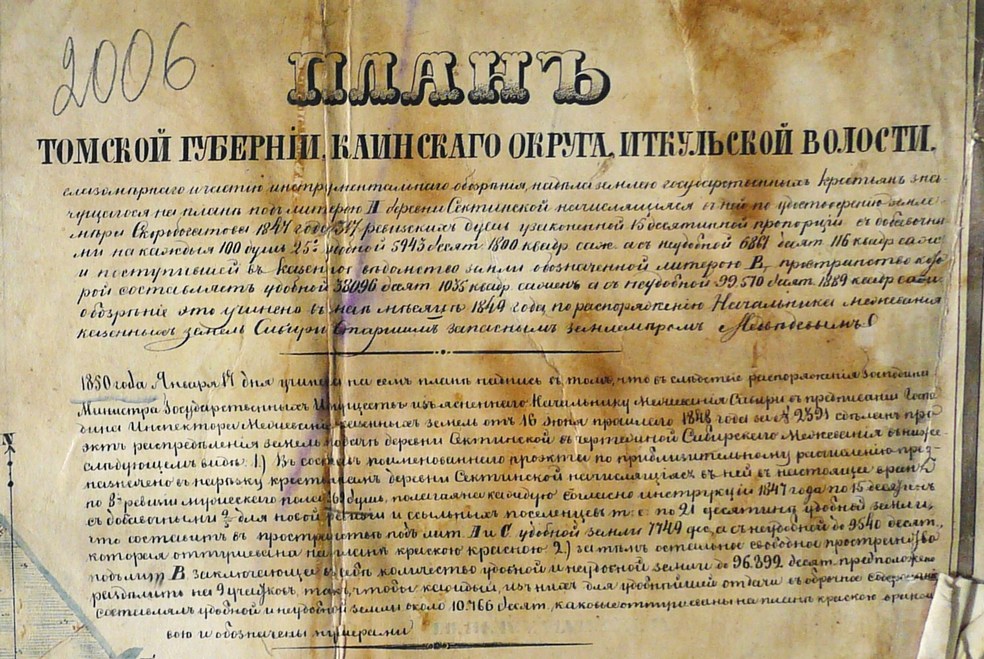 2006
ПЛАНЪ
ТОМСКОЙ ГУБЕРНІИ, КАИНСКАГО ОКРУГА, ИТКУЛЬСКОЙ ВОЛОСТИ.
глазомѣрнаго и частію инструментальнаго обозрѣнія, надѣла землею государственныхъ крестьянъ зна-
чущагося на планѣ подъ литерою А деревни Сектинской начисляющихся въ ней по удостовѣренію земле-
мѣра 1847 года 317 ревизскихъ душъ узаконенной 15 десятинной пропорціи съ добавочны-
ми на каждыя 100 душъ 25ю удобной 5943 десят 1800 квадр саж а съ неудобной 6861 десят 116 квадр саж
и поступившей въ Казенное вѣдомство земли обозначенной литерою В, пространство кото-
рой составляетъ удобной 38096 десят 1035 квадр сажен а съ неудобной 99.570 десят 1889 квадр сажен
обозрѣніе это учинено въ маѣ мѣсяцѣ 1849 года по распоряженію Начальника межеванія
казенныхъ земель Сибири Старшимъ запаснымъ землемѣромъ
1850 года Января 17 дня учинена на семъ планѣ надпись въ томъ, что въ слѣдствіе распоряженія Господина
Министра Государственныхъ Имуществъ изъясненнаго Начальнику Межеванія Сибири въ предписаніи Госпо-
дина Инспектора Межеванія казенныхъ земель отъ 16 Іюня прошлаго 1848 года за № 2391 сдѣланъ про-
эктъ распредѣленія земель дачи деревни Сектинской въ чертежной Сибирскаго Межеванія въ ниже-
слѣдующемъ видѣ: 1.) Въ составъ поименованнаго проэкта по приблизительному расчисленію пред-
назначено въ нарѣзку крестьянамъ деревни Сектинской начисляющихся въ ней въ настоящее время
по 8й ревизіи мужескаго пола душъ, полагая на каждую согласно инструкціи 1847 года по 15 десятинъ
съ добавочными для новой ревизіи и ссыльныхъ поселенцевъ т: е: по 21 десятинѣ удобной земли,
что составитъ въ пространствѣ подъ лит. А и С удобной земли 7749 дес, а съ неудобной до 9540 десят.,
которая оттушевана на планѣ краскою красною 2.) за тѣмъ остальное свободное пространство
подъ лит В заключающее въ себѣ количество удобной и неудобной земли до 96.892 десят. предположено
раздѣлить на 9 участковъ, такъ чтобы каждый, изъ нихъ для удобнѣйшей отдачи въ оброчное содержаніе
составлялъ удобной и неудобной земли около 10.766 десят., каковые оттушеваны на планѣ краскою оранже-
вою и обозначены нумерами
N